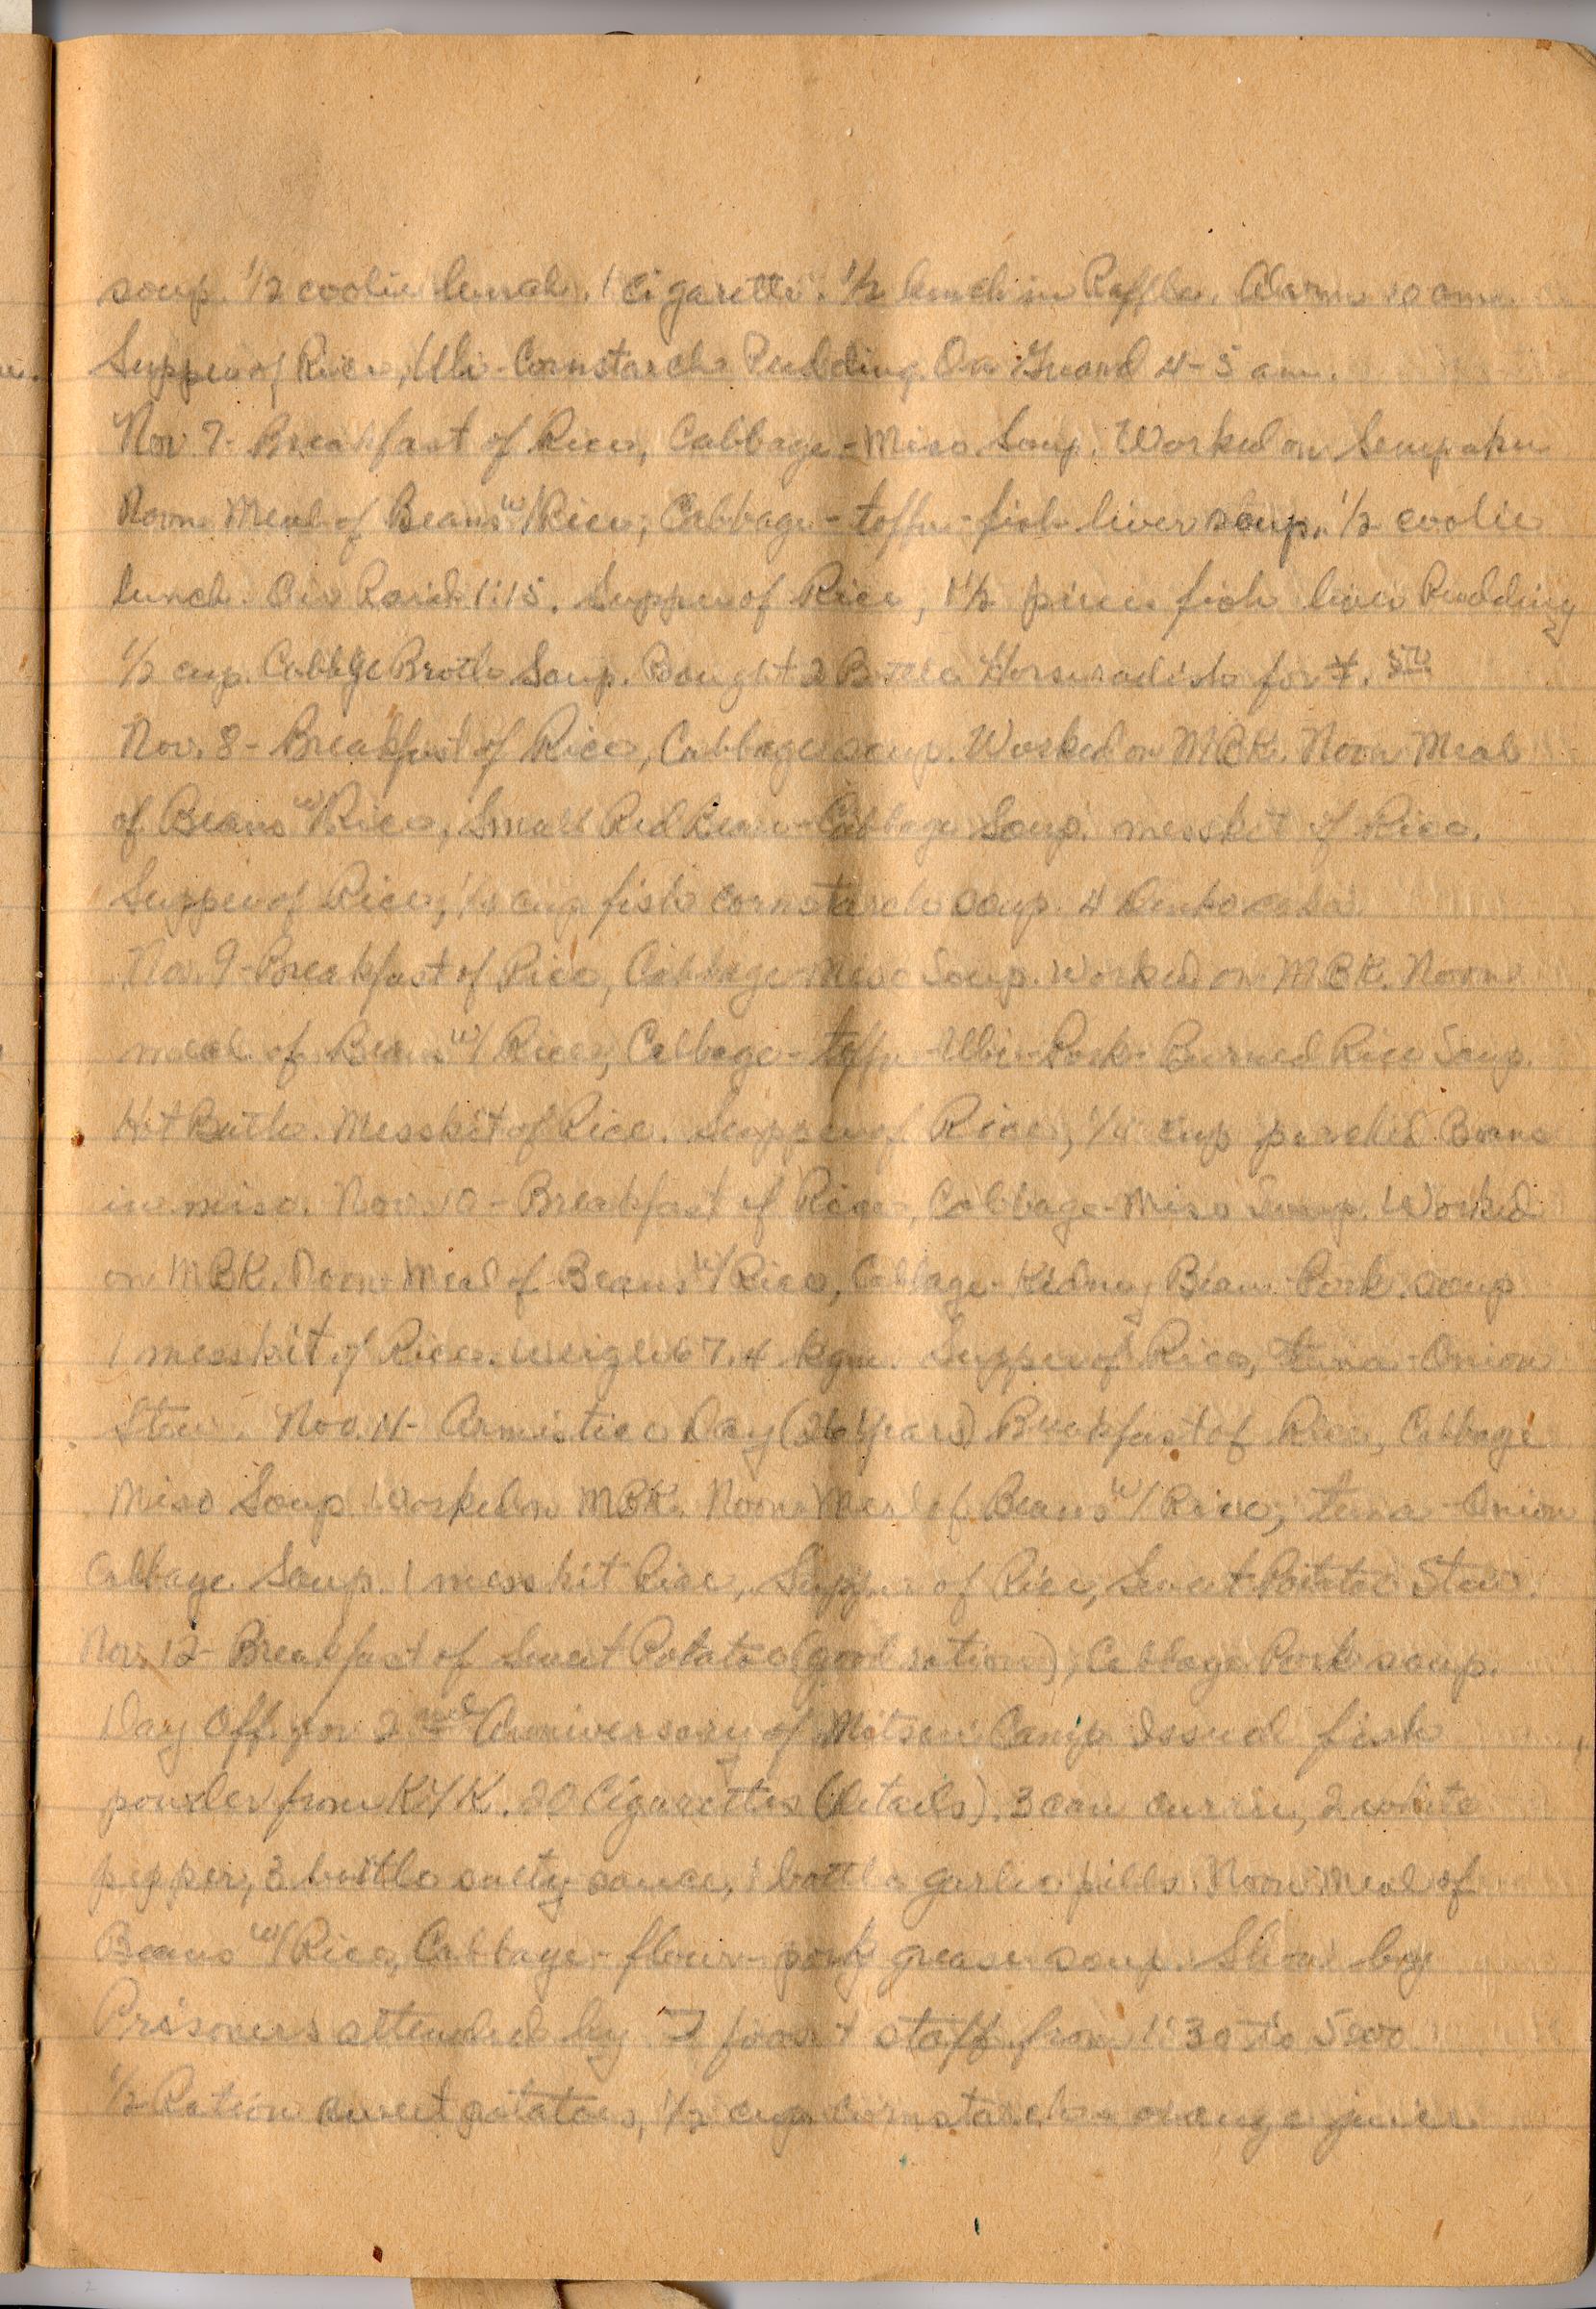 soup. 1/2 coolie lunch. 1 cigarette. 1/2 lunch in Raffle. Alarm 10 am.
Supper of Rice, Ubi-Cornstarch Pudding. On Guard 4-5 am.
Nov. 7- Breakfast of Rice, Cabbage-Miso Soup. Worked on Senpaku
Noon Meal of Beans w/Rice, Cabbage-toffu-fish liver soup. 1/2 coolie
lunch. Air Raid 1:15. Supper of Rice, 1 1/2 piece fish liver Pudding
1/2 cup Cabbge Broth Soup. Bought 2 Bottle Horseradish for
Nov. 8- Breakfast of Rice, Cabbage soup. Worked on MBK. Noon Meal
of Beans w/Rice, Small Red Bean-Cabbage Soup. messkit of Rice.
Supper of Rice, cup fish cornstarch soup. 4
Nov. 9-Breakfast of Rice, Cabbage-Miso Soup. Worked on MBK. Noon
meal of Beans w/Rice, Cabbage-toffu-Ubi-Pork-Burned Rice Soup.
Hot Bath. Messkit of Rice. Supper of Rice, 1/4 cup parched Beans
in miso. Nov. 10- Breakfast of Rice, Cabbage-Miso Soup. Worked
on MBK. Noon Meal of Beans w/Rice, Cabbage-Kidney Bean-Pork soup
1 messkit of Rice. Weigh 67.4 kgm. Supper of Rice, tuna-Onion
Stew. Nov. 11- Armistice Day (26 Years) Breakfast of Rice, Cabbage
Miso Soup. Worked on MBK. Noon Meal of Beans w/Rice, tuna-Onion
Cabbage Soup. 1 messkit Rice, Supper of Rice, Sweet Potatoe Stew.
Nov. 12- Breakfast of Sweet Potatoe (good ration), Cabbage Pork soup.
Day Off for 2nd Anniversary of Mitsui Camp. Issued fish
powder from KYK. 20 Cigarettes (details). 3 can currie, 2 white
pepper, 3 bottle salty sauce, 1 bottle garlic pills. Noon Meal of
Beans w/Rice, Cabbage-flour-pork grease soup. Show by
Prisoners attended by staff from 1:30 to 5:00
1/2 Ration sweet potatoes, 1/2 cup cornstarch-orange juice